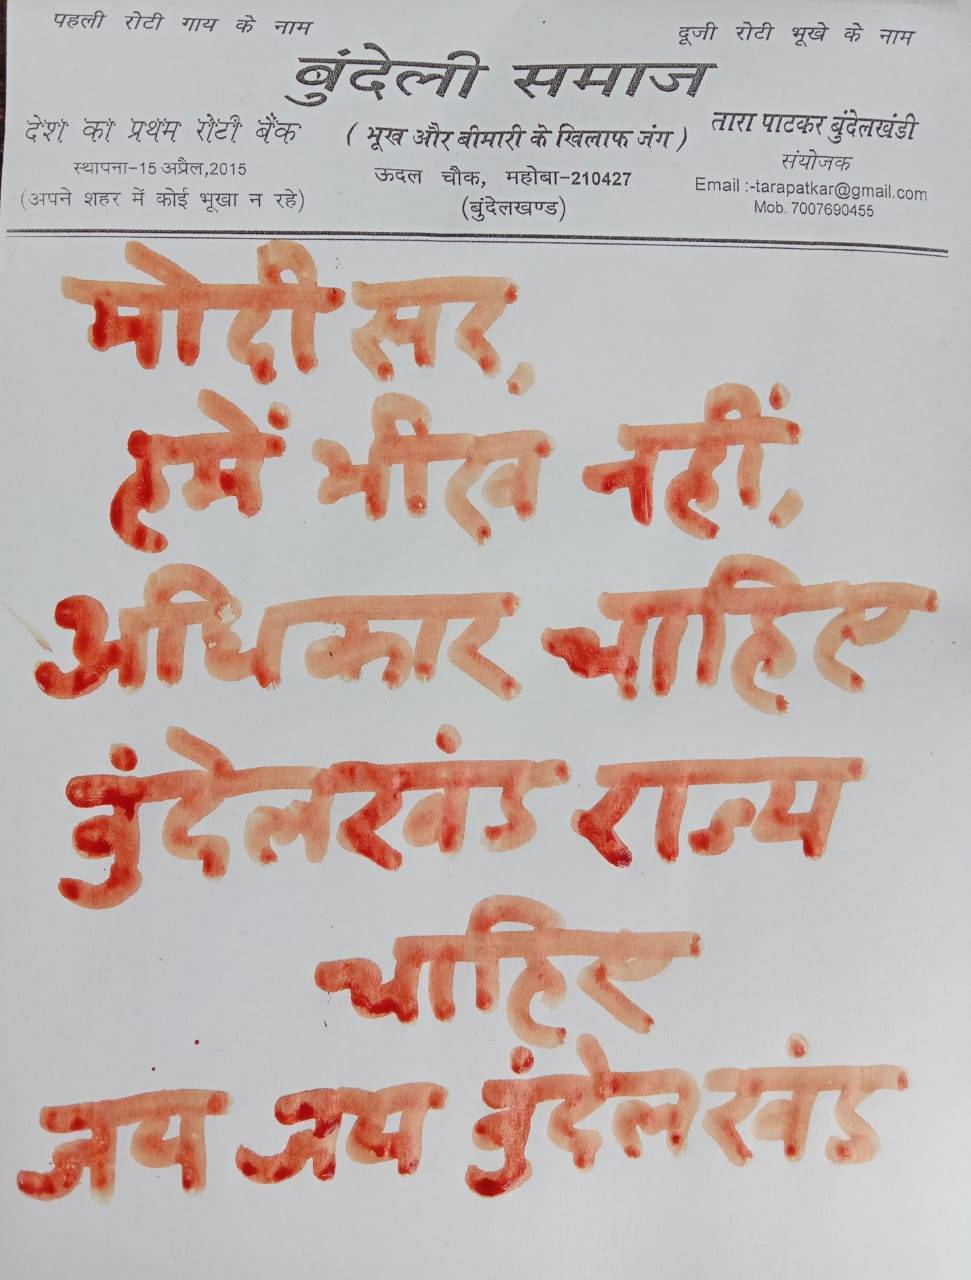 पहली रोटी गाय के नाम
दूजी रोटी भूखे के नाम
बुंदेली समाज
देश का प्रथम रोटी बैंक
( भूख और बीमारी के खिलाफ जंग )
तारा पाटकर बुंदेलखंडी
स्थापना-15 अप्रैल,2015
ऊदल चौक, महोबा-210427
संयोजक
(अपने शहर में कोई भूखा न रहे)
(बुंदेलखण्ड)
Email :-tarapatkar@gmail.com
Mob. 7007690455
मोदी सर,
हमें भीख नहीं,
अधिकार चाहिए
बुंदेलखंड राज्य
चाहिए
जय जय बुंदेलखंड